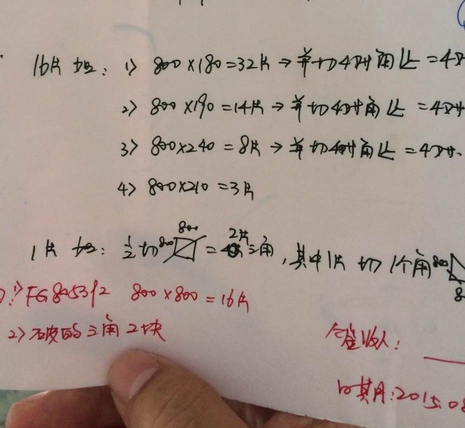 16片 1) 800×180=32片→ 切4 角 =4
2) 800×190=14片→ 切4 角 =4
3) 800×240=8片→ 切4 角 =4
4) 800×210=3片
1片 ½切 800 800 = 2片三角,其中1片 切1个角 800
1) FG805312 800×800=16片
2) 破的三角2块
签收人:
日期:2015.08